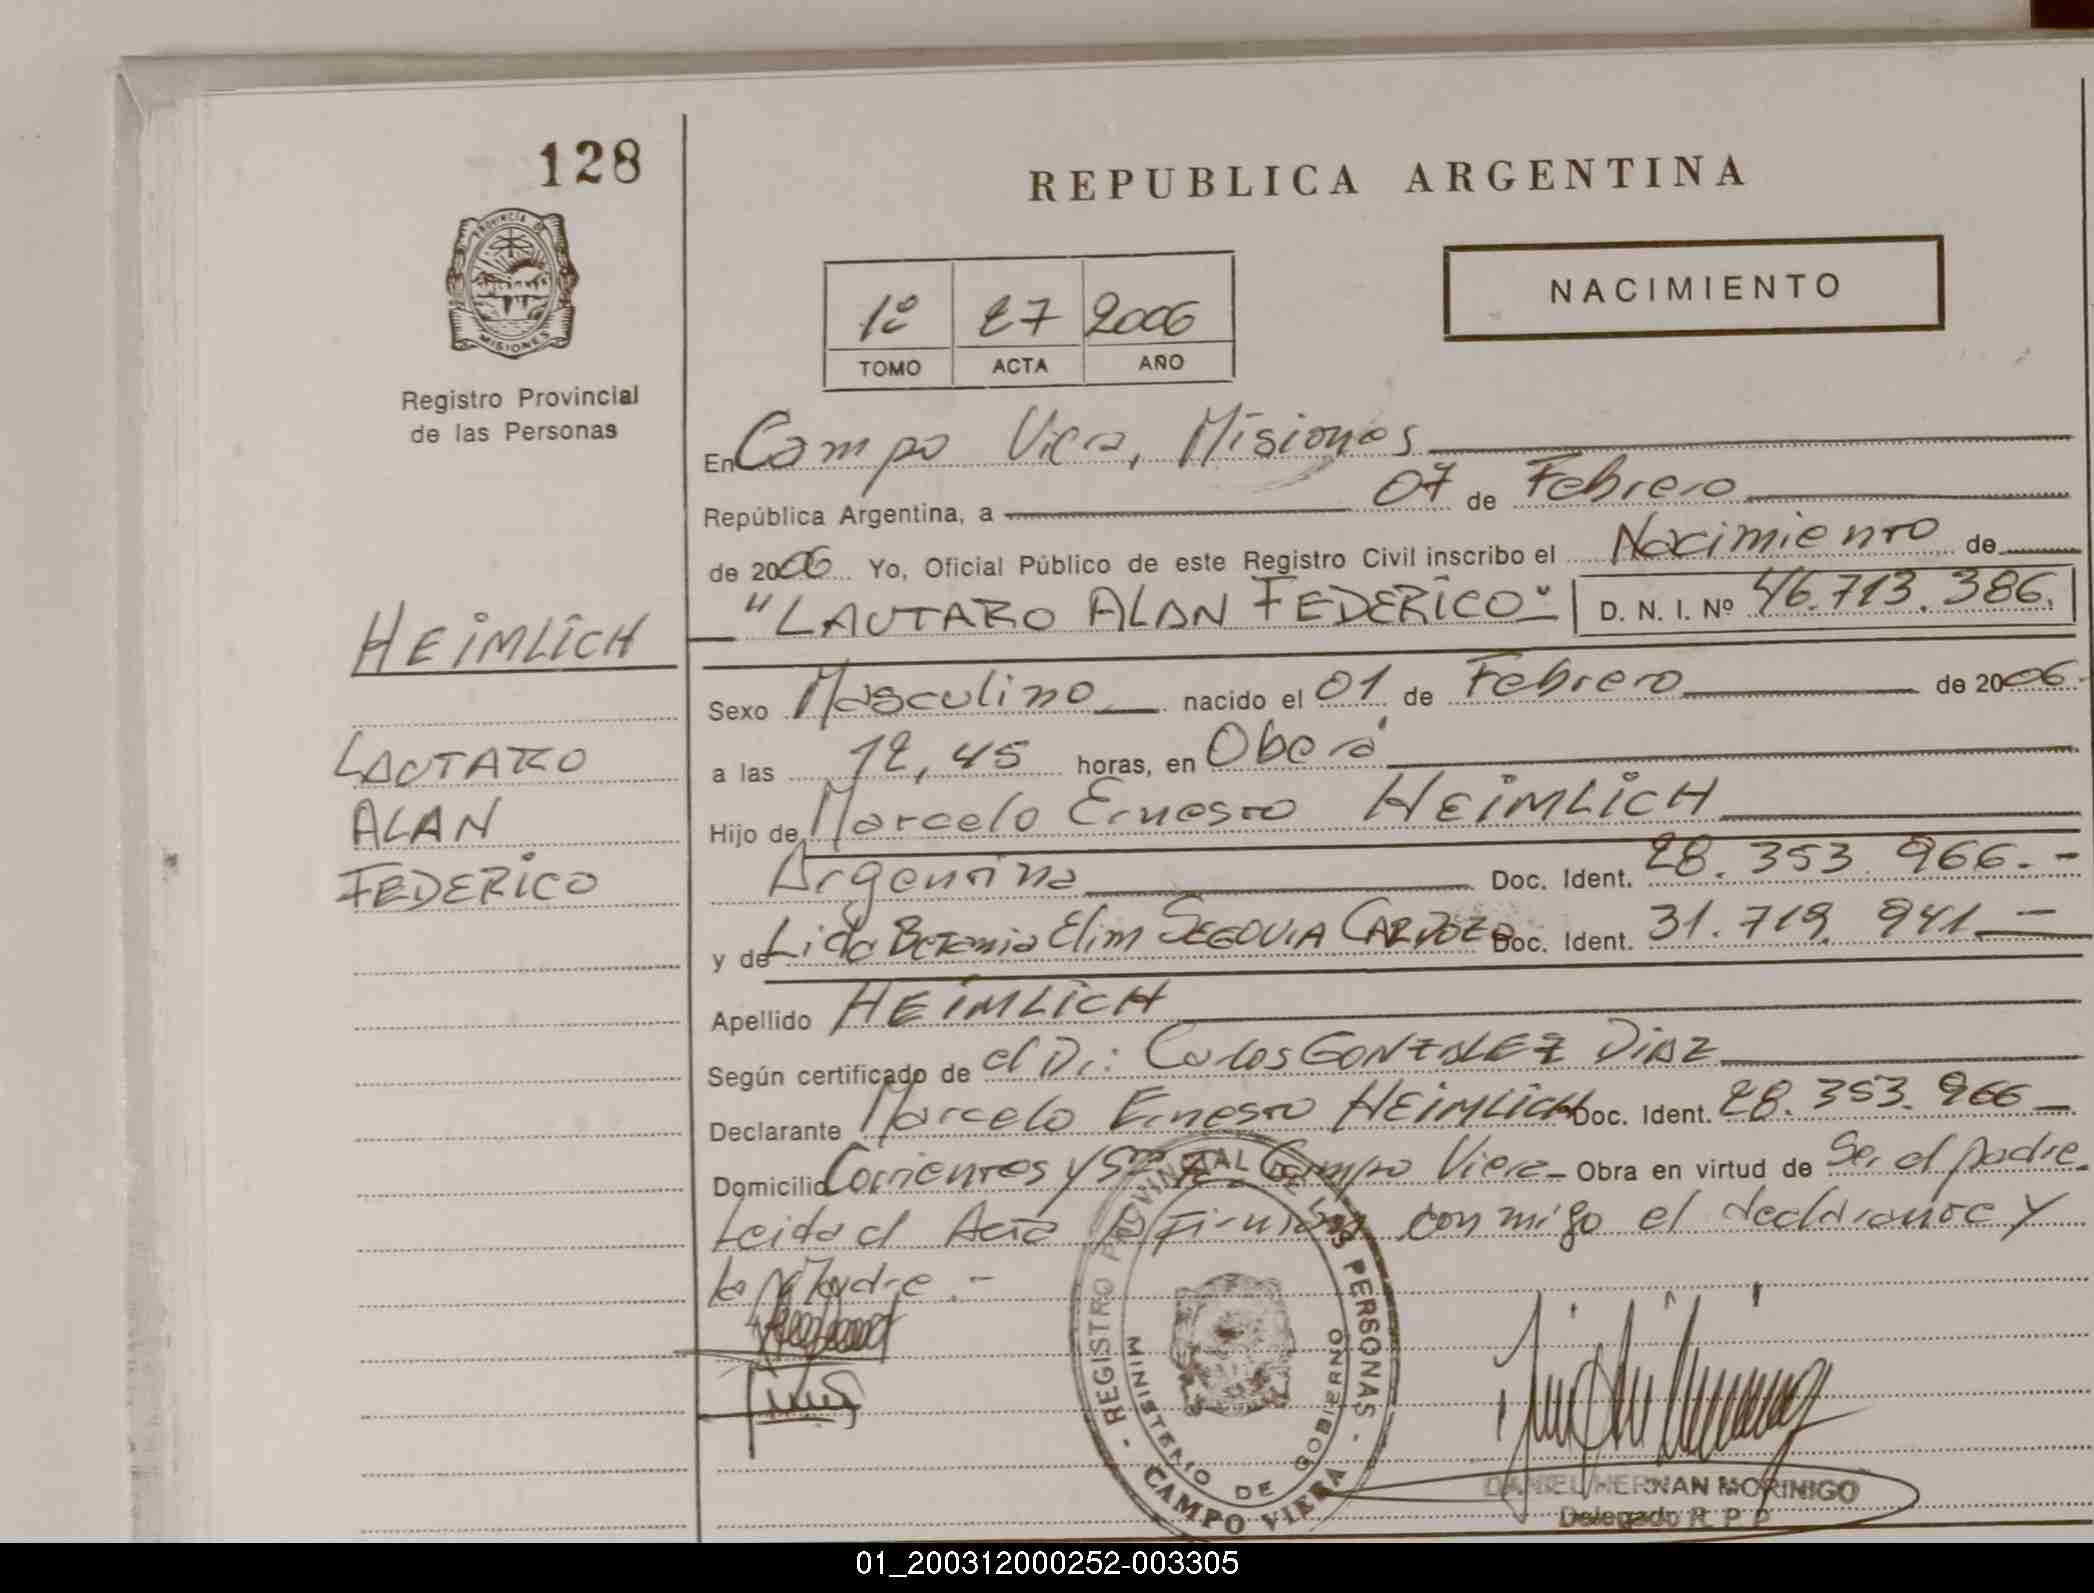 128
REPUBLICA ARGENTINA
PROVINCIA DE
MISIONES
Registro Provincial
de las Personas
1º 27 2006
TOMO ACTA AÑO
NACIMIENTO
En Campo Viera, Misiones
República Argentina, a 07 de Febrero
de 2006 Yo, Oficial Público de este Registro Civil inscribo el Nacimiento de
"LAUTARO ALAN FEDERICO" D. N. I. Nº 46.713.386.
HEIMLICH
LAUTARO
ALAN
FEDERICO
Sexo Masculino nacido el 01 de Febrero de 2006.-
a las 12,45 horas, en Oberá
Hijo de Marcelo Ernesto HEIMLICH
Argentina Doc. Ident. 28.353.966.-
y de Lida Betania Elim SEGOVIA CARDOZO Doc. Ident. 31.719.941.-
Apellido HEIMLICH
Según certificado de el Dr: Carlos GONZALEZ DIAZ
Declarante Marcelo Ernesto HEIMLICH Doc. Ident. 28.353.966-
Domicilio Corrientes y Campo Viera- Obra en virtud de Ser el padre.
Leida el Acta Firman conmigo el declarante y
la Madre.-
- REGISTRO PROVINCIAL DE LAS PERSONAS -
MINISTERIO DE GOBIERNO
CAMPO VIERA
DANIEL HERNAN MORINIGO
Delegado R. P. P.
01_200312000252-003305